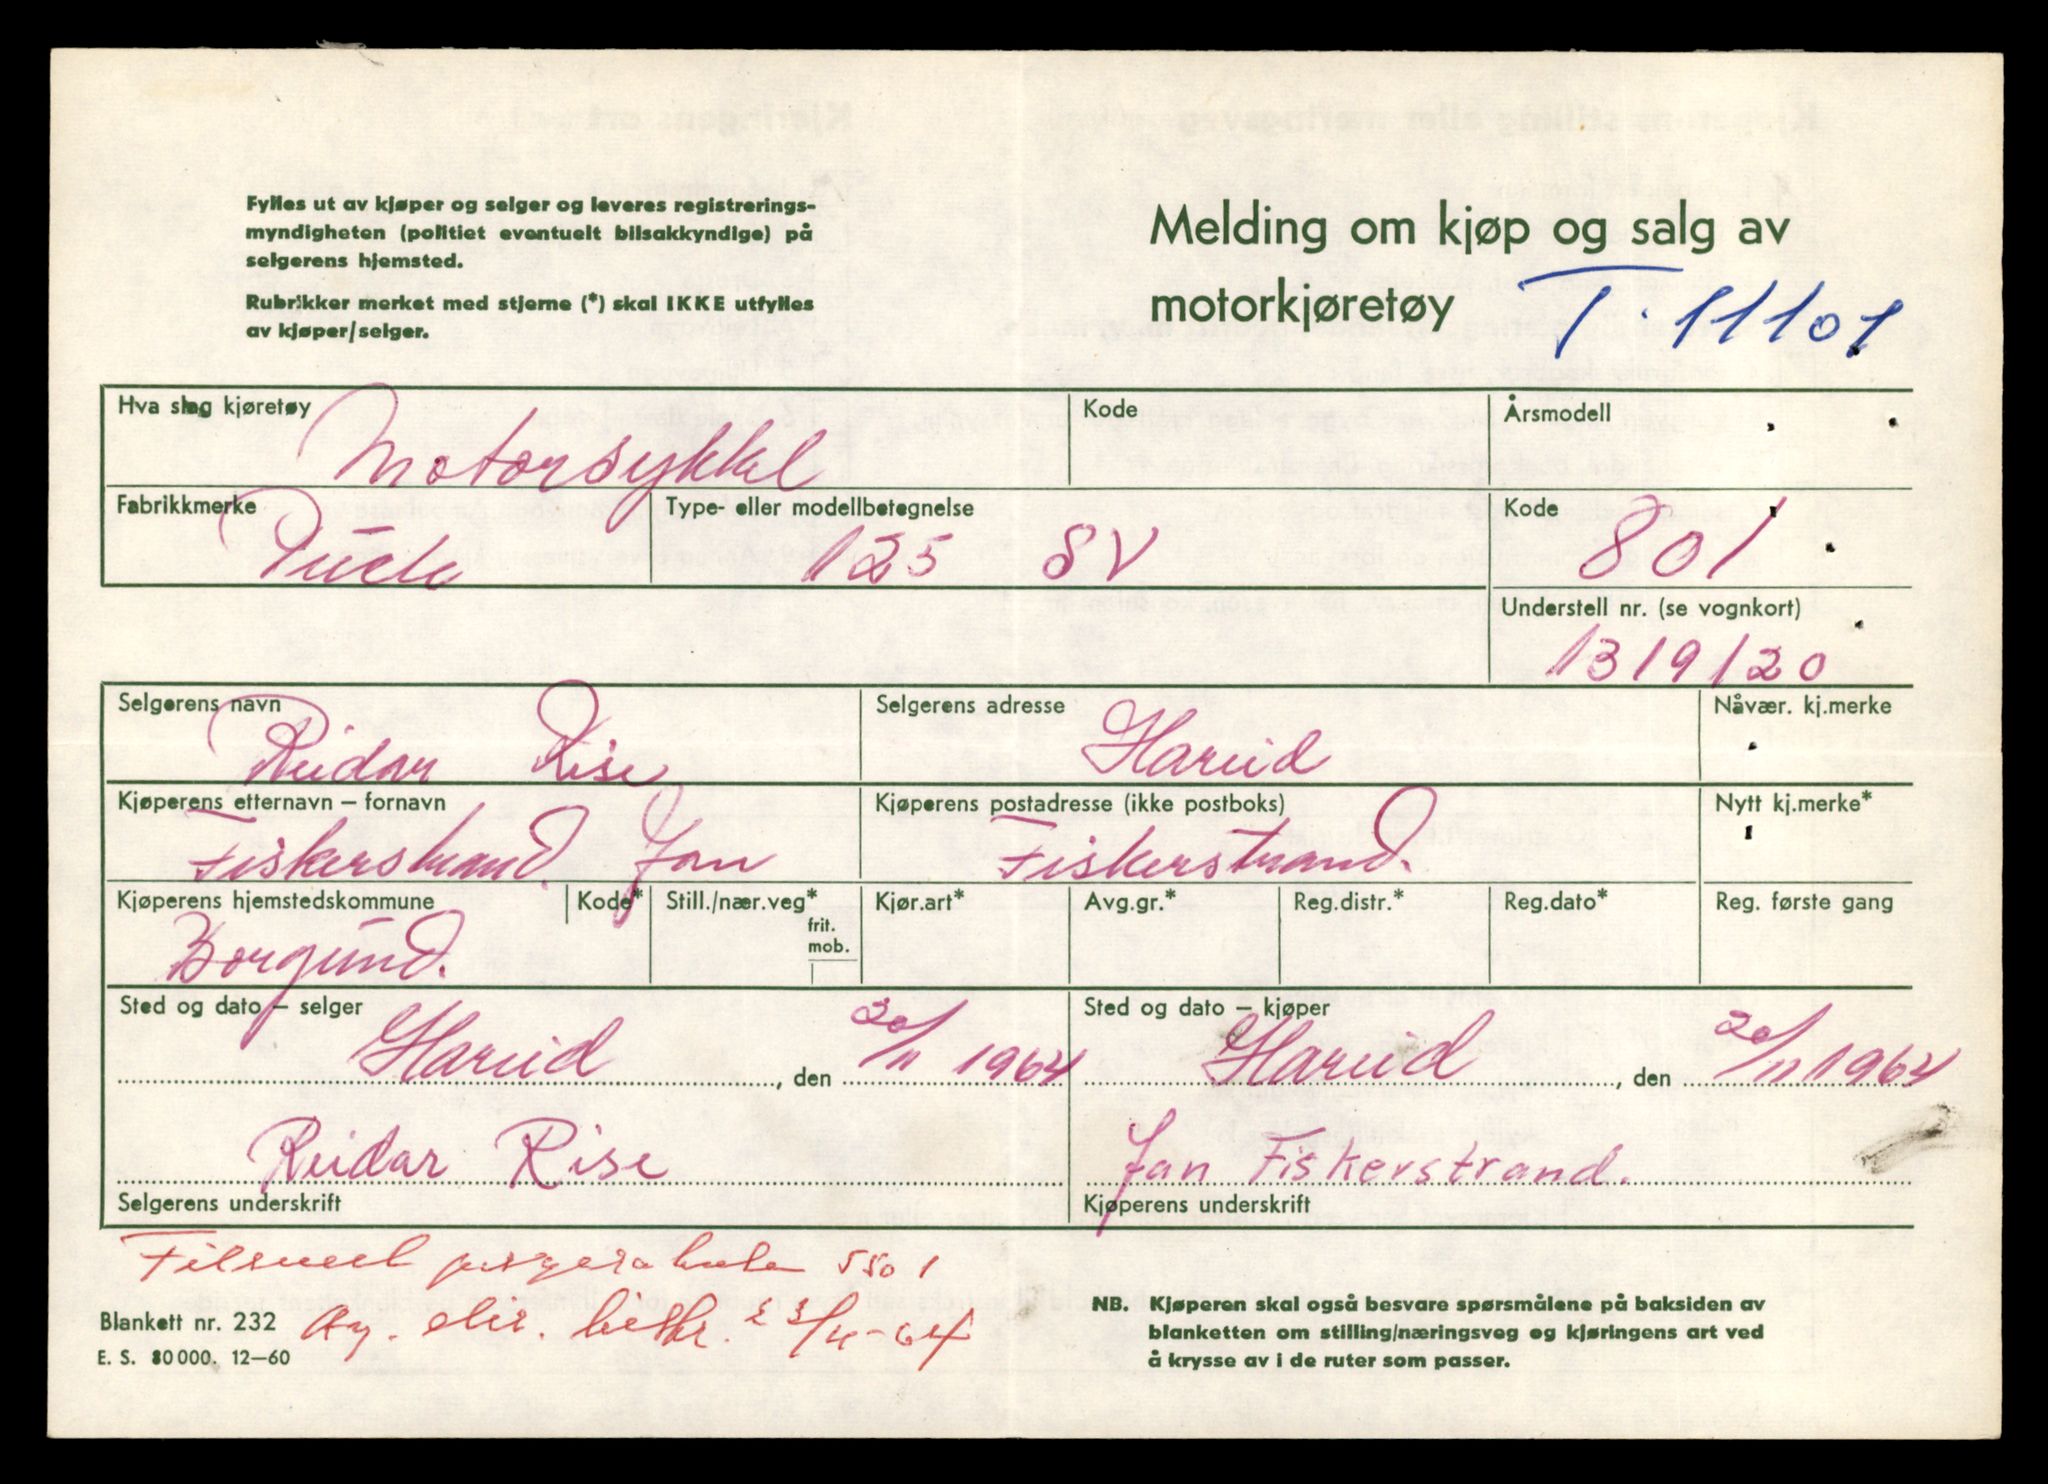 Fylles ut av kjøper og selger og leveres registrerings-
myndigheten (politiet eventuelt bilsakkyndige) på
selgerens hjemsted.
Rubrikker merket med stjerne (*) skal IKKE utfylles
av kjøper/selger.
Melding om kjøp og salg av
motorkjøretøy T. 11101
Hva slag kjøretøy Kode Årsmodell
Motorsykkel
Fabrikkmerke Type- eller modellbetegnelse Kode
Puch 125 SV 801
Understell nr. (se vognkort)
1319120
Selgerens navn Selgerens adresse Nåvær. kj.merke
Reidar Rise Hareid
Kjøperens etternavn – fornavn Kjøperens postadresse (ikke postboks) Nytt kj.merke*
Fiskerstrand Jan Fiskerstrand.
Kjøperens hjemstedskommune Kode* Still./nær.veg* Kjør.art* Avg.gr.* Reg.distr.* Reg.dato* Reg. første gang
frit.
mob.
Borgund.
Sted og dato – selger Sted og dato – kjøper
Hareid, den 20/11 1964 Hareid, den 20/11 1964
Reidar Rise Jan Fiskerstrand.
Selgerens underskrift Kjøperens underskrift
5501
Blankett nr. 232
E. S. 80000. 12–60
NB. Kjøperen skal også besvare spørsmålene på baksiden av
blanketten om stilling/næringsveg og kjøringens art ved
å krysse av i de ruter som passer.